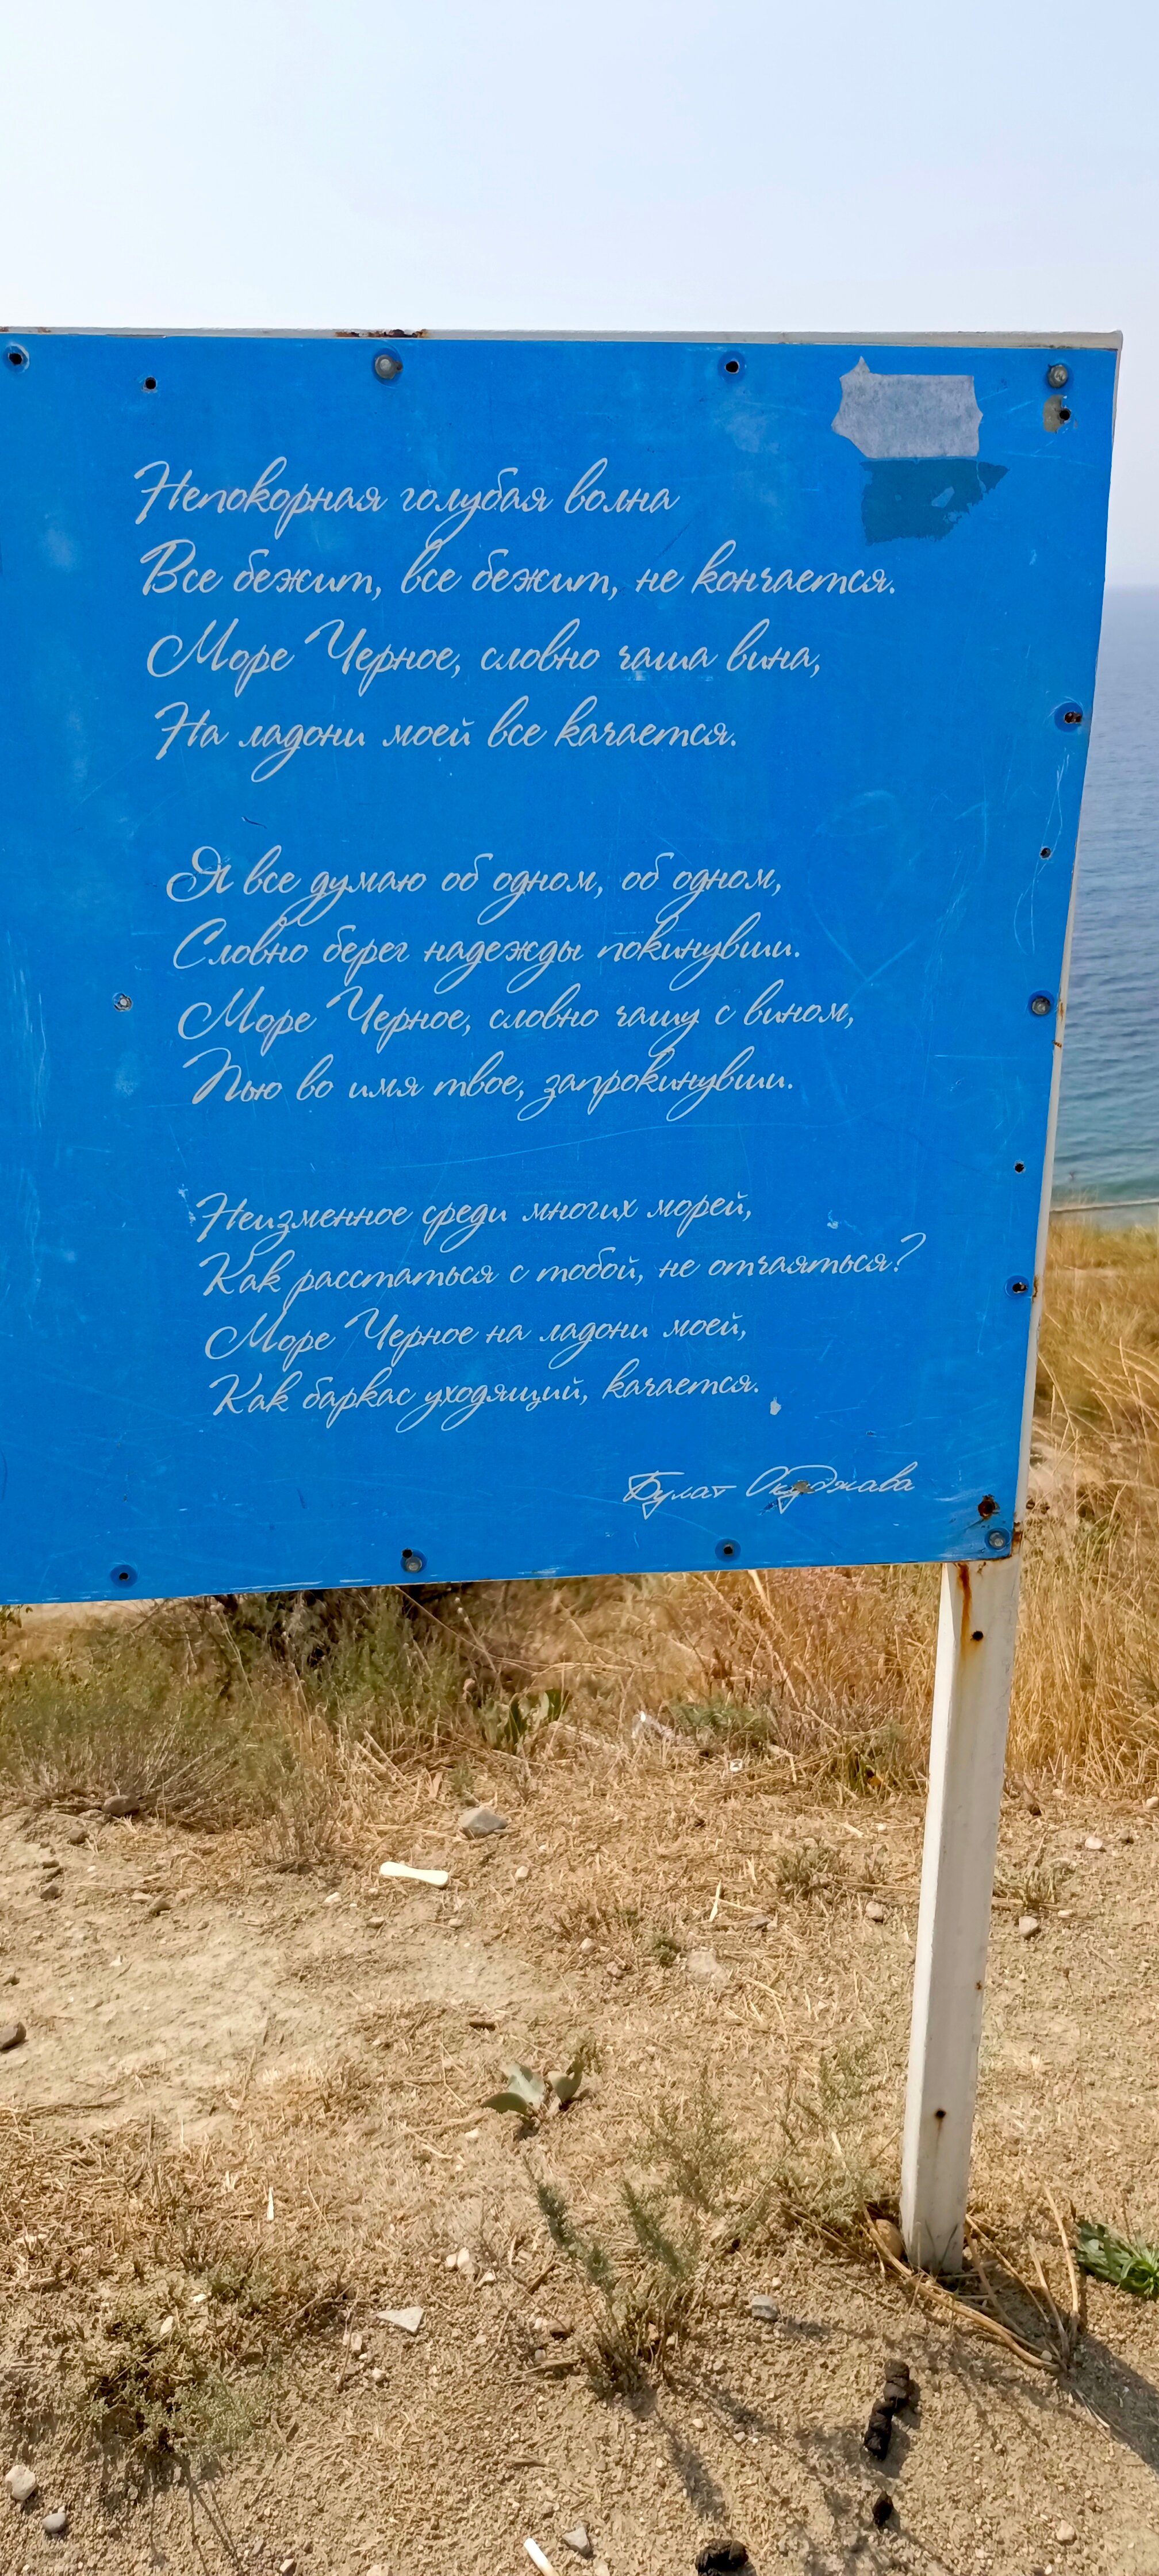 Непокорная голубая волна
Все бежит, все бежит, не кончается.
Море Черное, словно чаша вина,
На ладони моей все качается.
Я все думаю об одном, об одном,
Словно берег надежды покинувши.
Море Черное, словно чашу с вином,
Пью во имя твое, запрокинувши.
Неизменное среди многих морей,
Как расстаться с тобой, не отчаяться?
Море Черное на ладони моей,
Как баркас уходящий, качается.
Булат Окуджава